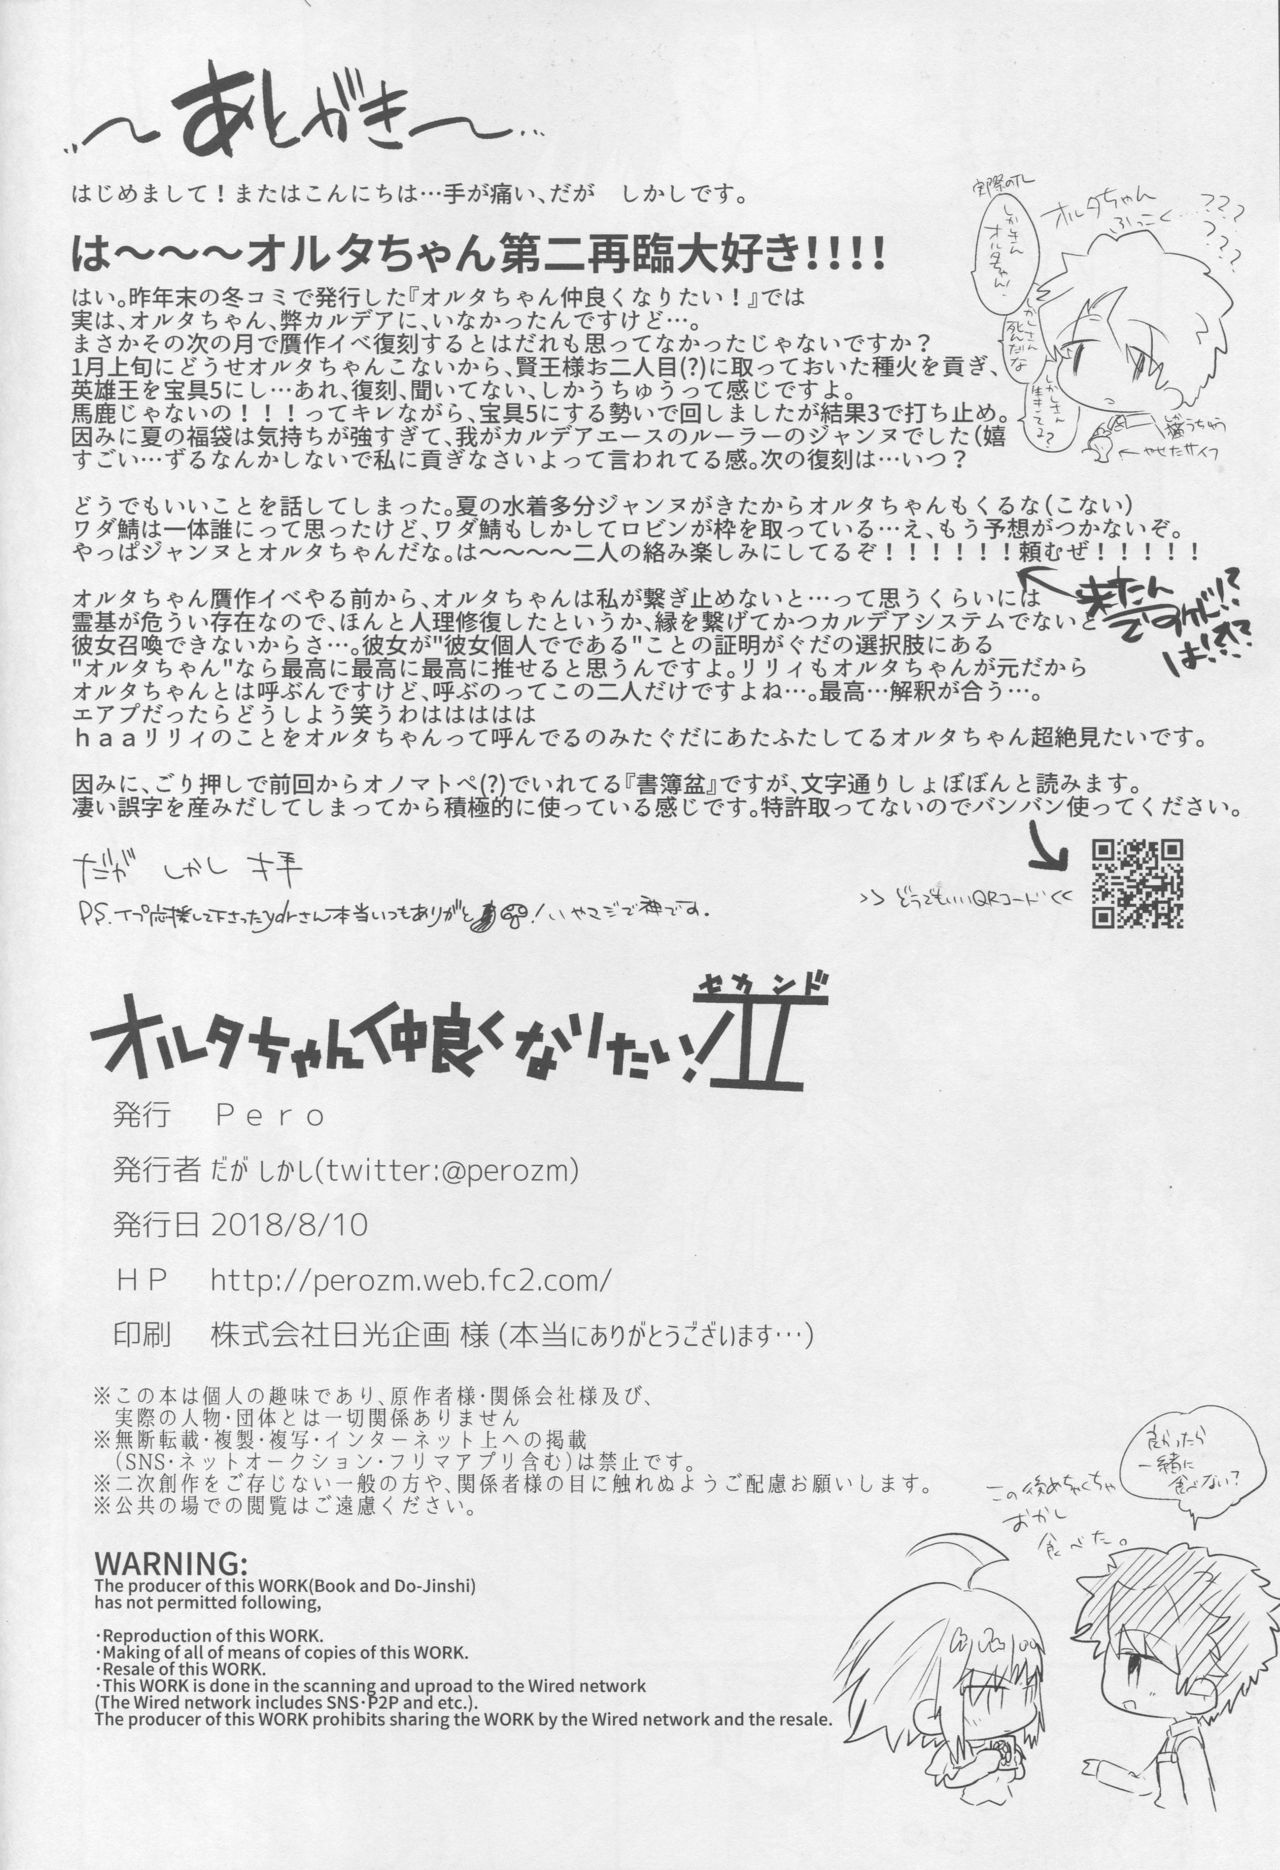 ～あとがき～
はじめまして！またはこんにちは…手が痛い、だが　しかしです。
は～～～オルタちゃん第二再臨大好き！！！！
はい。昨年末の冬コミで発行した『オルタちゃん仲良くなりたい！』では
実は、オルタちゃん、弊カルデアに、いなかったんですけど…。
まさかその次の月で贋作イベ復刻するとはだれも思ってなかったじゃないですか？
1月上旬にどうせオルタちゃんこないから、賢王様お二人目(?)に取っておいた種火を貢ぎ、
英雄王を宝具5にし…あれ、復刻、聞いてない、しかうちゅうって感じですよ。
馬鹿じゃないの！！！ってキレながら、宝具5にする勢いで回しましたが結果3で打ち止め。
因みに夏の福袋は気持ちが強すぎて、我がカルデアエースのルーラーのジャンヌでした（嬉
すごい…ずるなんかしないで私に貢ぎなさいよって言われてる感。次の復刻は…いつ？
どうでもいいことを話してしまった。夏の水着多分ジャンヌがきたからオルタちゃんもくるな（こない）
ワダ鯖は一体誰にって思ったけど、ワダ鯖もしかしてロビンが枠を取っている…え、もう予想がつかないぞ。
やっぱジャンヌとオルタちゃんだな。は～～～～二人の絡み楽しみにしてるぞ！！！！！！頼むぜ！！！！！
来たんですけど!?は!?!?
オルタちゃん贋作イベやる前から、オルタちゃんは私が繋ぎ止めないと…って思うくらいには
霊基が危うい存在なので、ほんと人理修復したというか、縁を繋げてかつカルデアシステムでないと
彼女召喚できないからさ…。彼女が"彼女個人でである"ことの証明がぐだの選択肢にある
"オルタちゃん"なら最高に最高に最高に推せると思うんですよ。リリィもオルタちゃんが元だから
オルタちゃんとは呼ぶんですけど、呼ぶのってこの二人だけですよね…。最高…解釈が合う…。
エアプだったらどうしよう笑うわはははははは
ｈａａリリィのことをオルタちゃんって呼んでるのみたぐだにあたふたしてるオルタちゃん超絶見たいです。
因みに、ごり押しで前回からオノマトペ(?)でいれてる『書簿盆』ですが、文字通りしょぼぼんと読みます。
凄い誤字を産みだしてしまってから積極的に使っている感じです。特許取ってないのでバンバン使ってください。
だが しかし 拝
>> どうでもいいQRコード <<
P.S.イプ応援して下さったydrさん本当いつもありがと!いやマジで神です。
実際のTL
しかさんオルタちゃん!
しかしさん死んだな
しかしさん生きてる?
オルタちゃんふっこく…????????
猫うちゅう
←やせたサイフ
オルタちゃん仲良くなりたい!II
セカンド
発行　Ｐｅｒｏ
発行者 だが しかし(twitter:@perozm)
発行日 2018/8/10
ＨＰ　http://perozm.web.fc2.com/
印刷　株式会社日光企画 様 (本当にありがとうございます…)
※この本は個人の趣味であり、原作者様・関係会社様及び、
実際の人物・団体とは一切関係ありません
※無断転載・複製・複写・インターネット上への掲載
（SNS・ネットオークション・フリマアプリ含む）は禁止です。
※二次創作をご存じない一般の方や、関係者様の目に触れぬようご配慮お願いします。
※公共の場での閲覧はご遠慮ください。
WARNING:
The producer of this WORK(Book and Do-Jinshi)
has not permitted following,
・Reproduction of this WORK.
・Making of all of means of copies of this WORK.
・Resale of this WORK.
・This WORK is done in the scanning and uproad to the Wired network
(The Wired network includes SNS・P2P and etc.).
The producer of this WORK prohibits sharing the WORK by the Wired network and the resale.
良かったら
一緒に
食べない?
この後めちゃくちゃ
おかし
食べた。